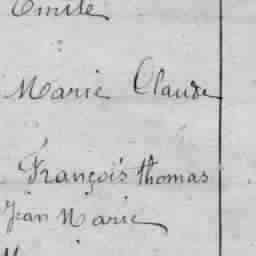 Emile
Marie Claude
François thomas
Jean Marie